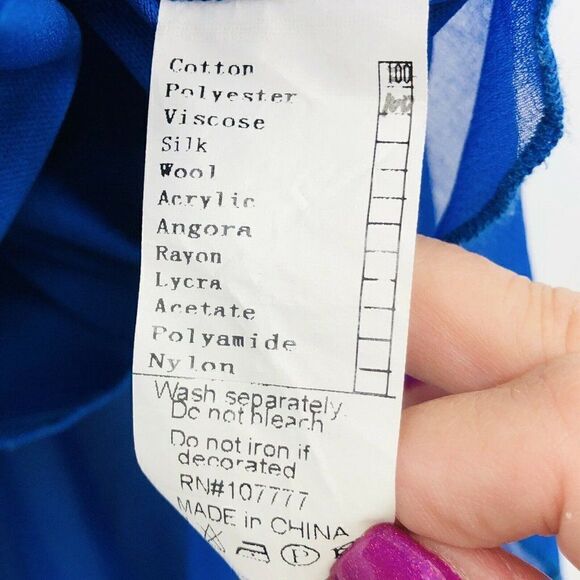 Cotton 100
Polyester 100
Viscose
Silk
Wool
Acrylic
Angora
Rayon
Lycra
Acetate
Polyamide
Nylon
Wash separately.
Do not bleach
Do not iron if
decorated
RN#107777
MADE in CHINA
P